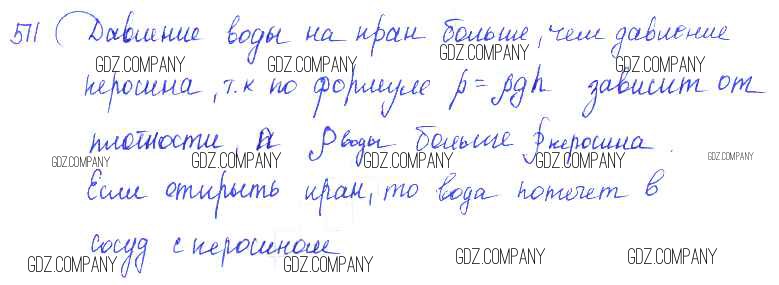 511 Давление воды на кран больше, чем давление
GDZ.COMPANY GDZ.COMPANY GDZ.COMPANY GDZ.COMPANY
керосина, т.к по формуле p = ρgh зависит от
плотности, а ρ воды больше ρ керосина.
GDZ.COMPANY GDZ.COMPANY GDZ.COMPANY GDZ.COMPANY GDZ.COMPANY
Если открыть кран, то вода потечет в
сосуд с керосином
GDZ.COMPANY GDZ.COMPANY GDZ.COMPANY GDZ.COMPANY